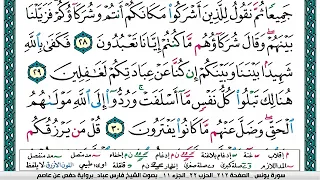 جَمِيعًا ثُمَّ نَقُولُ لِلَّذِينَ أَشْرَكُوا مَكَانَكُمْ أَنتُمْ وَشُرَكَآؤُكُمْ فَزَيَّلْنَا
بَيْنَهُمْ وَقَالَ شُرَكَآؤُهُم مَّا كُنتُمْ إِيَّانَا تَعْبُدُونَ ٢٨ فَكَفَىٰ بِاللَّهِ
شَهِيدًا بَيْنَنَا وَبَيْنَكُمْ إِن كُنَّا عَنْ عِبَادَتِكُمْ لَغَافِلِينَ ٢٩
هُنَالِكَ تَبْلُوا كُلُّ نَفْسٍ مَّا أَسْلَفَتْ وَرُدُّوا إِلَى اللَّهِ مَوْلَاهُمُ
الْحَقِّ وَضَلَّ عَنْهُم مَّا كَانُوا يَفْتَرُونَ ٣٠ قُلْ مَن يَرْزُقُكُم
سورة يونس الصفحة ٢١٢ الحزب ٢٢ الجزء ١١ بصوت الشيخ فارس عباد برواية حفص عن عاصم